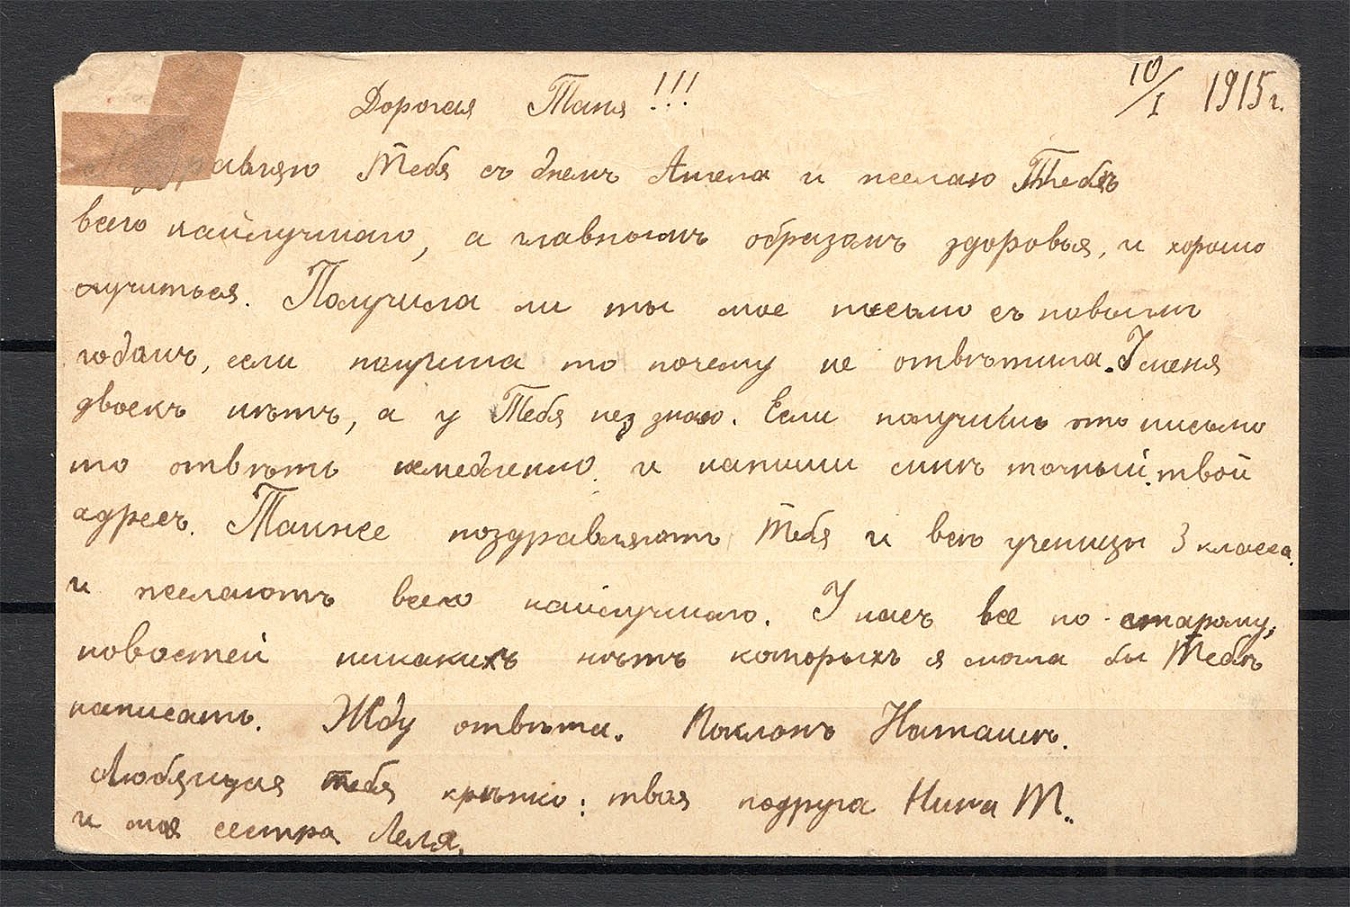 10/I 1915 г.
Дорогая Таня!!!
Поздравляю Тебя съ днемъ Ангела и желаю Тебѣ
всего наилучшаго, а главнымъ образомъ здоровья, и хорошо
учиться. Получила ли ты мое письмо съ новымъ
годомъ, если получила то почему не отвѣтила. У меня
двоекъ нѣтъ, а у Тебя не знаю. Если получишь это письмо
то отвѣть немедленно и напиши мнѣ точный твой
адресъ. Также поздравляютъ Тебя и всѣ ученицы 3 класса.
и желаютъ всего наилучшаго. У насъ все по старому,
новостей никакихъ нѣтъ которыхъ я могла бы Тебѣ
написать. Жду отвѣта. Поклонъ Наташѣ.
Любящая тебя крѣпко: твоя подруга Нина Т.
и моя сестра Леля.